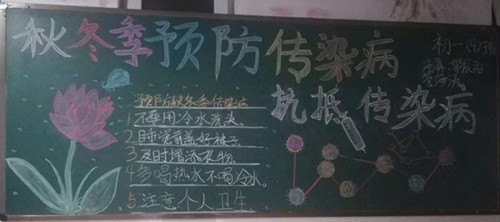 秋冬季预防传染病
初一(4)班
抗抵传染病
预防秋冬季传染病
1.不要用冷水洗头
2.睡觉前盖好被子
3.及时增添衣物
4.多喝热水不喝冷水
5.注意个人卫生